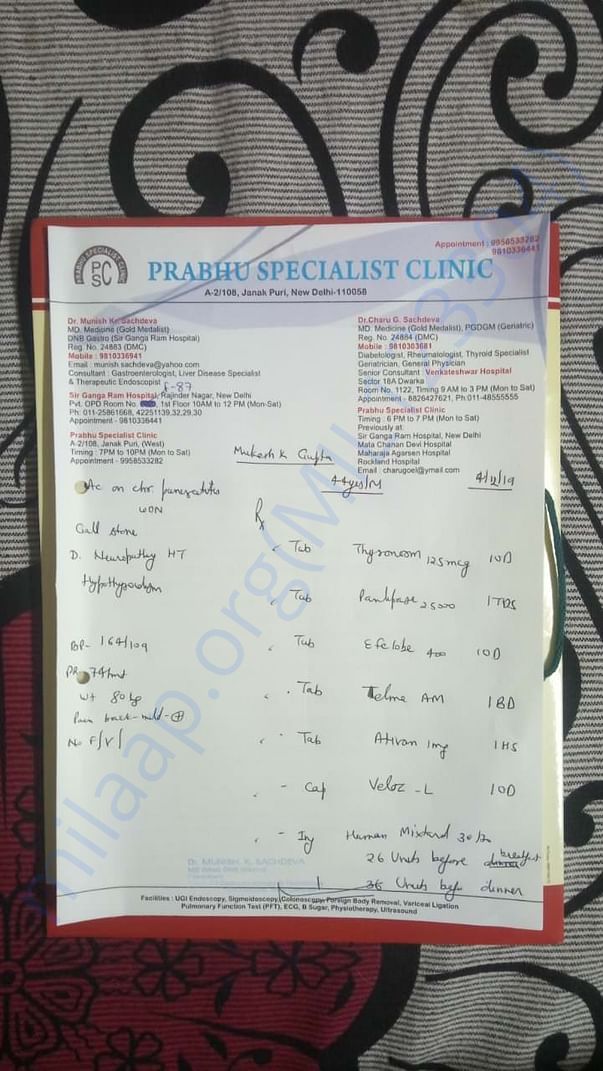 PRABHU SPECIALIST CLINIC
PC
SC
Appointment : 9958533282
9810336441
PRABHU SPECIALIST CLINIC
A-2/108, Janak Puri, New Delhi-110058
Dr. Munish Kr. Sachdeva
MD. Medicine (Gold Medalist)
DNB Gastro (Sir Ganga Ram Hospital)
Reg. No. 24883 (DMC)
Mobile : 9810336941
Email : munish.sachdeva@yahoo.com
Consultant : Gastroenterologist, Liver Disease Specialist
& Therapeutic Endoscopist
F-87
Sir Ganga Ram Hospital, Rajinder Nagar, New Delhi
Pvt. OPD Room No. , 1st Floor 10AM to 12 PM (Mon-Sat)
Ph: 011-25861668, 42251139,32,29,30
Appointment - 9810336441
Prabhu Specialist Clinic
A-2/108, Janak Puri, (West)
Timing : 7PM to 10PM (Mon to Sat)
Appointment - 9958533282
Dr.Charu G. Sachdeva
MD. Medicine (Gold Medalist), PGDGM (Geriatric)
Reg. No. 24884 (DMC)
Mobile : 9810303681
Diabetologist, Rheumatologist, Thyroid Specialist
Geriatrician, General Physician
Senior Consultant : Venkateshwar Hospital
Sector 18A Dwarka
Room No. 1122, Timing 9AM to 3 PM (Mon to Sat)
Appointment - 8826427621, Ph.011-48555555
Prabhu Specialist Clinic
Timing : 6 PM to 7 PM (Mon to Sat)
Previously at:
Sir Ganga Ram Hospital, New Delhi
Mata Chanan Devi Hospital
Maharaja Agarsen Hospital
Rockland Hospital
Email : charugoel@ymail.com
Mukesh K Gupta
44yrs/M
4/12/19
Ac on chr. pancreatitis
WON
Gall stone
D. Neuropathy HT
Hypothyroidism
BP- 164/109
PR 74/mt
Wt 80 kg
Pain back - mild - +
No F/V/
Rx
Tab Thyronorm 125 mcg 1OD
Tab Panlipase 25000 1TDS
Tab 400 1OD
Tab Telma AM 1BD
Tab Ativan 1mg 1HS
Cap Veloz - L 1OD
Inj Human Mixtard 30/70
26 Units before breakfast
Units before dinner
Dr. MUNISH. K. SACHDEVA
Facilities : UGI Endoscopy, Sigmoidoscopy, Colonoscopy, Foreign Body Removal, Variceal Ligation
Pulmonary Function Test (PFT), ECG, B Sugar, Physiotherapy, Ultrasound
milaap.org